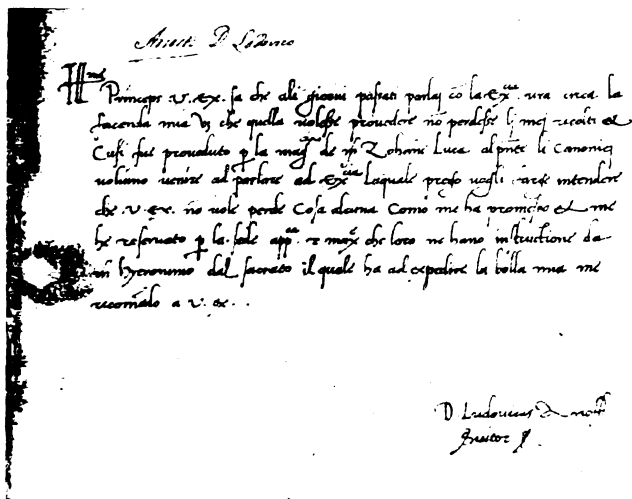 D Lodovico
Ill.me
Princeps V. Ex. sa che ali giorni passati parlaj cō la Ex.tia vra circa la
facenda mia che quella volesse provedere nō perdesse li mej et
Cusi fue proveduto p la mag. de Zohane Luca al pnte li Canonicj
voliano venire ad parlare ad Ex.tia laquale prego vogli farse intendere
che V. Ex. nō vole perda Cosa alcuna Como me ha promesso et me
he reservato p la sede app.ca max. che loro ne hano instructione da
Hyeronimo dal sacrato il quale ha ad expedire la bolla mia me
recomādo a V. Ex.
D Ludovicus